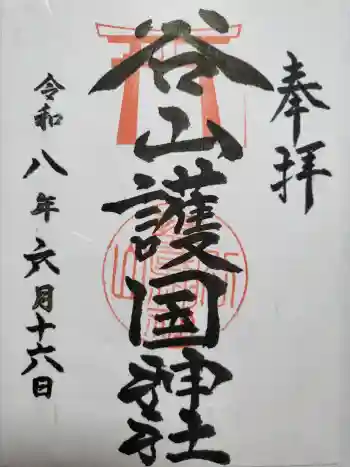 奉拝
谷山護国神社
令和八年六月十六日